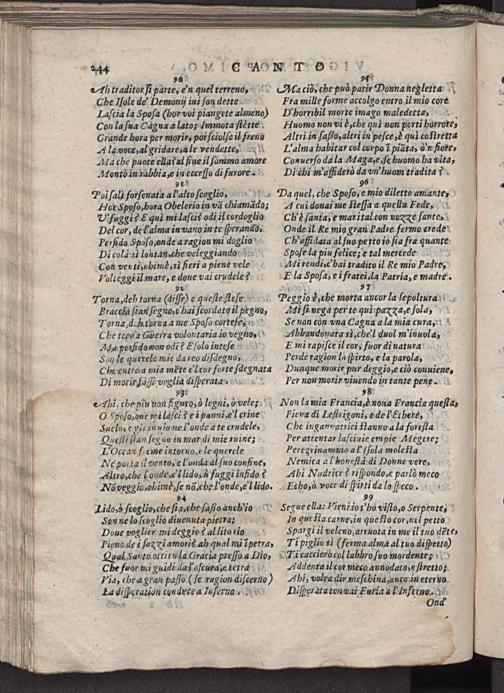 244
CANTO
90
Ah traditor si parte, e'n quel terreno,
Che Isole de' Demonij iui son dette
Lascia la Sposa (hor voi piangete almeno)
Con la sua Cagna a lato; Immota stette
Grande hora per morir, poi sciolse il freno
A la voce, al gridare, a le vendette,
Ma che puote ella? al fine il sommo amore
Montò in rabbia, e in eccesso di furore.
91
Poi salì forsenata a l'alto scoglio,
Hor Sposo, hora Obelerio in và chiamãdo;
V' fuggi? E quì mi lasci? odi il cordoglio
Del cor, de l'alma in vano in te sperando.
Perfido Sposo, onde a ragion mi doglio
Di colà sì lontan, che veleggiando
Con venti, ohimè, sì fieri a piene vele
Volteggi il mare, e doue vai crudele?
92
Torna, deh torna (disse) e queste stese
Braccia sian segno, e hai scordato il pegno,
Torna, deh torna a me Sposo cortese,
Che teco a Guerra volontaria io vegno,
Ma perfido non odi? E solo intese
Son le querele mie da reo disdegno,
Che entro a mia mẽte e'l cor forte sdegnata
Di morir, lassa voglia disperata.
93
Ahi, che più non figuro, ò legni, ò vele;
O Sposo, oue mi lasci? e i panni, e'l crine
Suelo, e gli inuio ne l'onde a te crudele,
Questi stan segno in mar di mie ruine;
L'Ocean freme intorno, e le querele
Nè porta il vento, e l'onda al suo confine,
Altro, che l'onde, e'l lido, ù fuggi infido?
Nõ veggio, ohimè, se nõ, che l'onde, e'l lido.
94
Lido, ò scoglio, che sia, che sasso anch'io
Son ne lo scoglio diuenuta pietra;
Doue voglier mi deggio? al lito rio
Pieno de i sozzi amori? ah qual mi'petra,
Qual Santo otti e la Gratia presso a Dio,
Che fuor mi guidi da l'oscura, e tetra
Via, che a gran passo (se ragion discerno)
La disperation conduce a Inferno.
95
Ma ciò, che può patir Donna negletta
Fra mille forme accolgo entro il mio core
D'horribil morte imago maledetta,
Huomo non vi è, che quì non porti horrore,
Altri in sasso, altri in pesce, è quì costretta
L'alma habitar col corpo ĩ piãta, ò'n fiore,
Conuerso da la Maga, e se huomo ha vita,
Di chi m'affiderò da vn'huom tradita?
96
Da quel, che Sposo, e mio diletto amante,
A cui donai me stessa a quella Fede,
Ch'è santa, e marital con nozze sante.
Onde il Re mio gran Padre fermo crede
Ch'affidata al suo petto io sia fra quante
Spose la piu felice; e tal mercede
Mi rendi, e hai tradito il Re mio Padre,
E la Sposa, e i fratei, la Patria, e madre.
97
Peggio è, che morta ancor la sepoltura
Mi si nega per te quì pazza, e sola,
Se non con vna Cagna a la mia cura,
Abbandonata sì, che'l duol m'inuola,
E mi rapisce il cor, fuor di natura
Perde ragion lo spirto, e la parola,
Dunque morir pur deggio, e ciò conuiene,
Per non morir viuendo in tante pene.
98
Non la mia Francia, è noua Francia questa,
Piena di Lestrigoni, e de l'Ethere,
Che ingannatrici stanno a la foresta
Per attentar lasciuie empie Megere;
Peregrinammo a l'Isola molesta
Nemica a l'honestà di Donne vere,
Ahi Nudrice? rispondo, e parlò meco
Echo, ò voce di spirti da lo speco.
99
Segue ella: Vieni o s'ho visto, o Serpente,
In questa carne, in questo cor, nel petto
Spargi il veleno, arruota in me il tuo dẽte,
Ti piglio sì (ferma alma al tuo dispetto)
Ti caccierò col labbro suo mordente;
Addenta il cor meco annodato, e stretto;
Ahi, volpe dir meschina, anco in eterno
Disperata ten vai Furia a l'Inferno.
Ond'